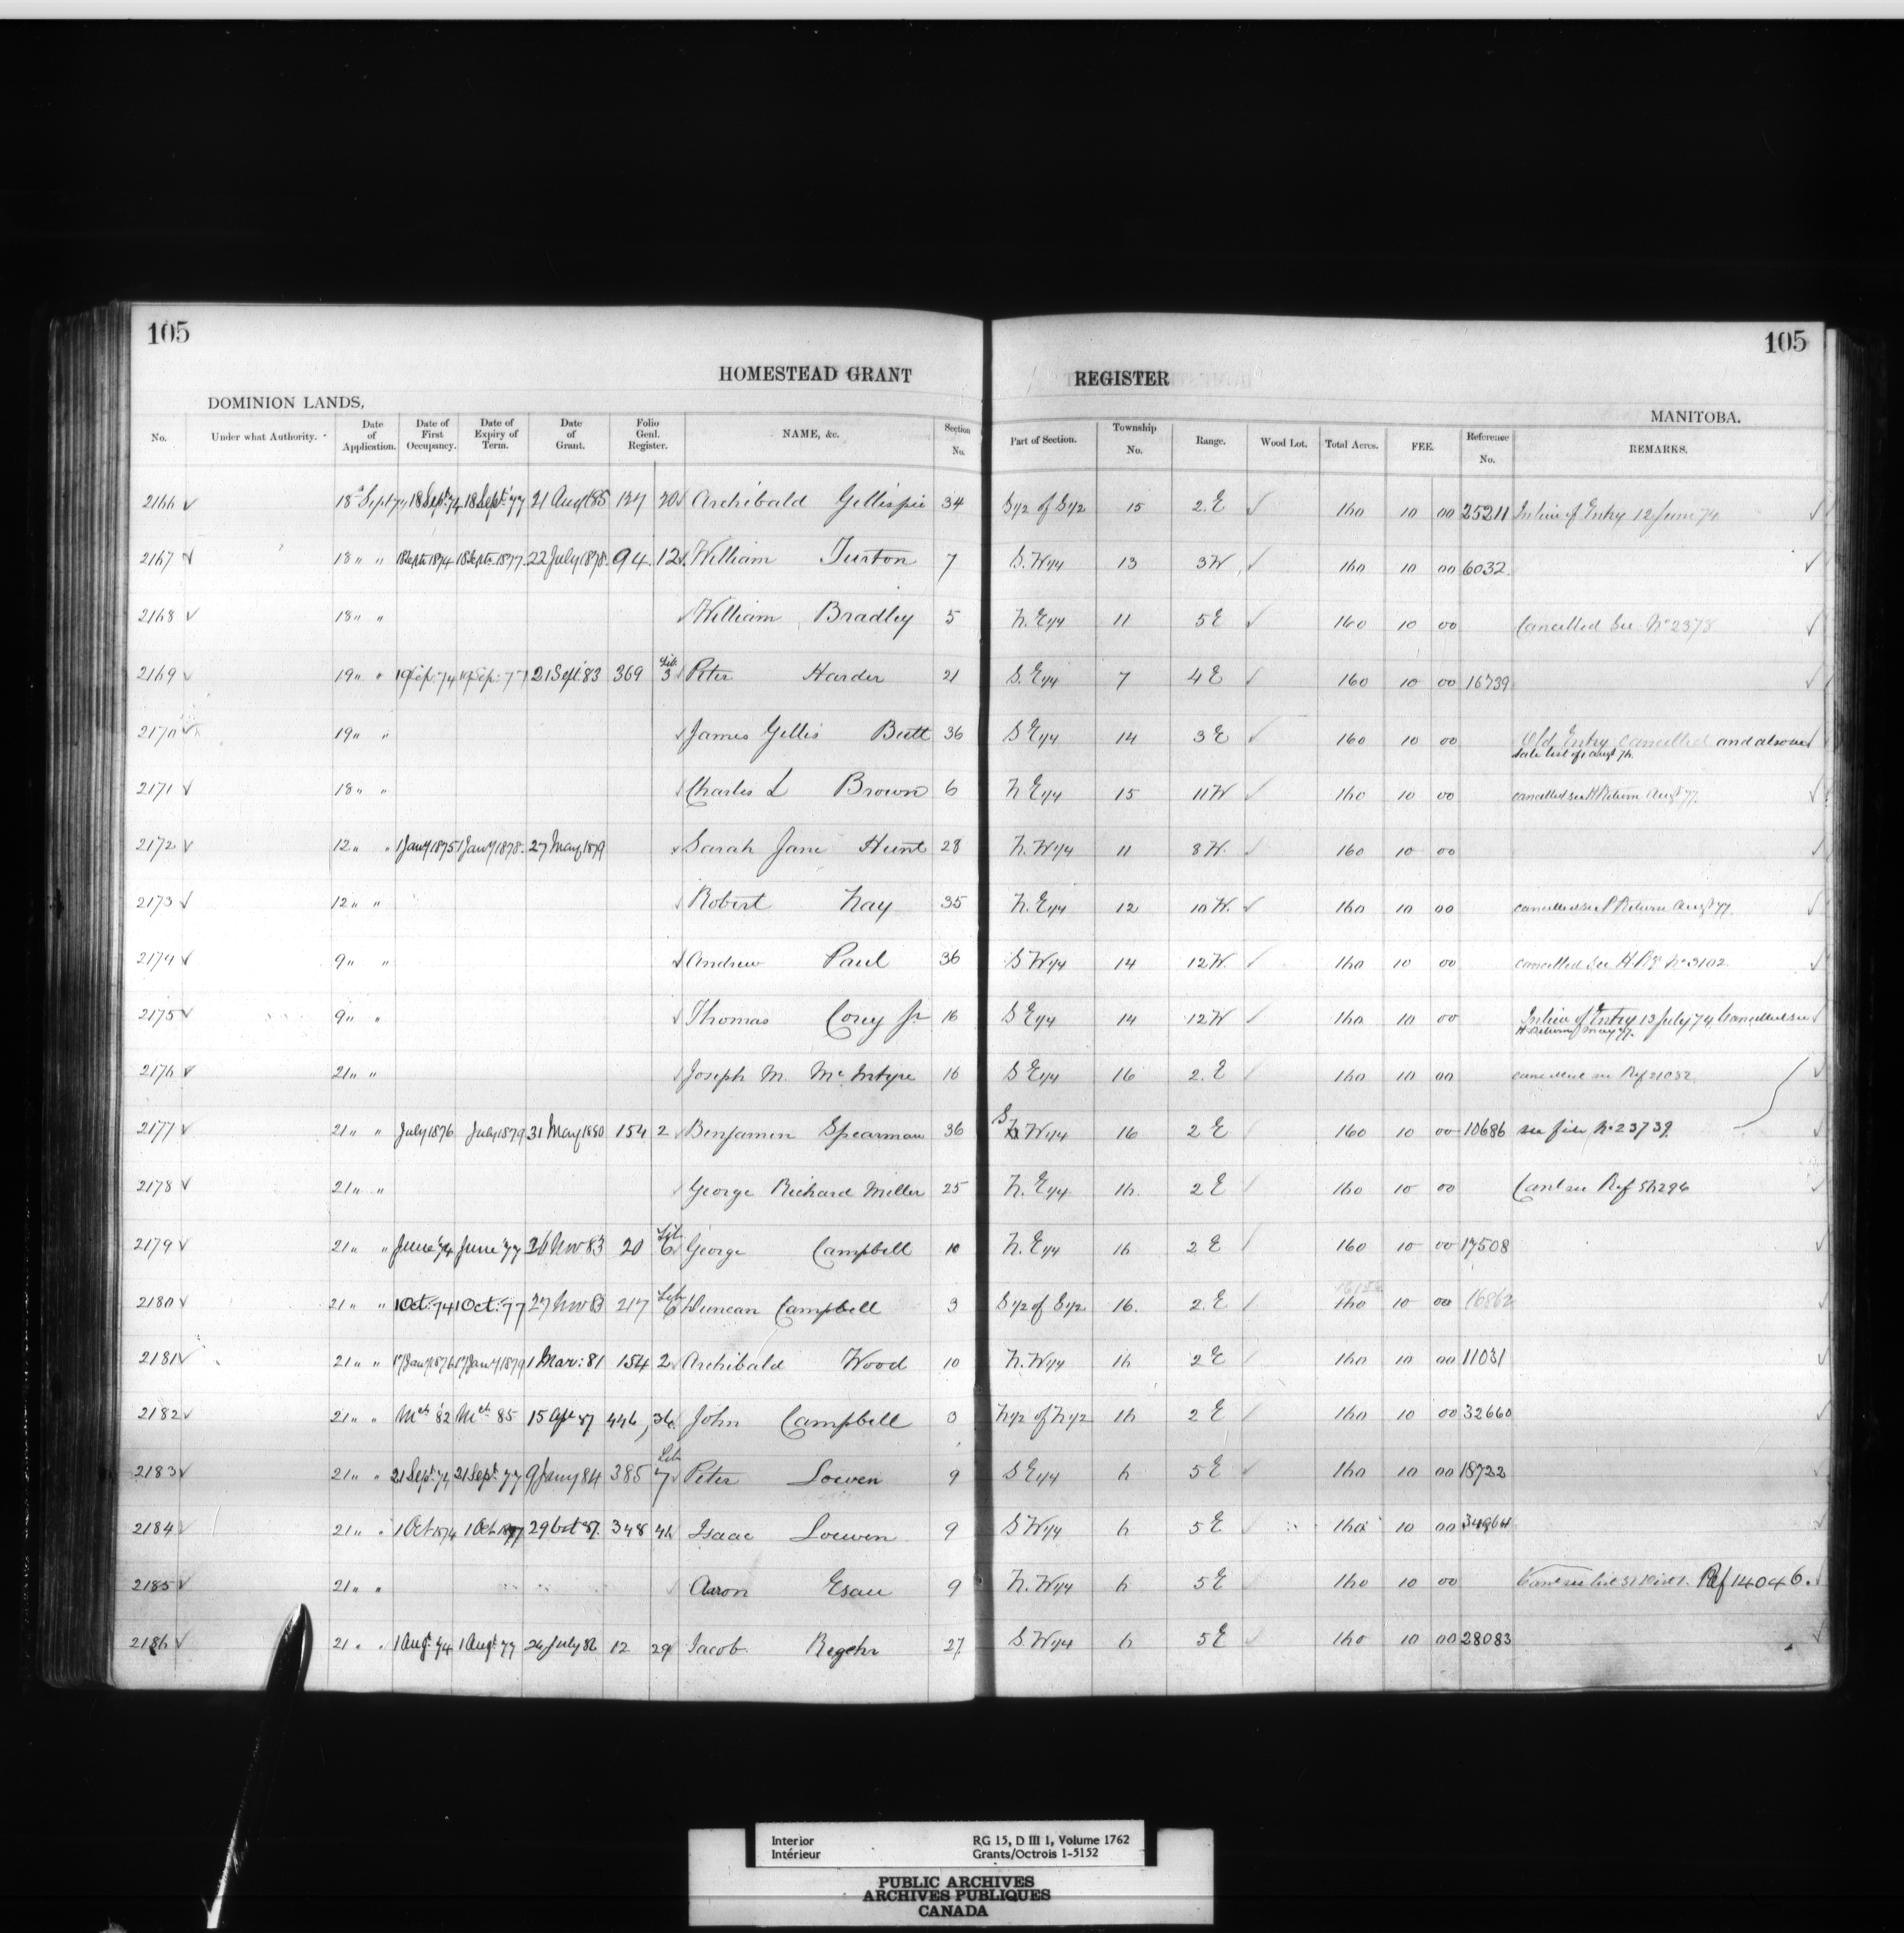 105
105
HOMESTEAD GRANT REGISTER
DOMINION LANDS,
MANITOBA.
No. Under what Authority. Date of Application. Date of First Occupancy. Date of Expiry of Term. Date of Grant. Folio Genl. Register. NAME, &c. Section No. Part of Section. Township No. Range. Wood Lot. Total Acres. FEE. Reference No. REMARKS.
2166 ✓ 18 Sept 74 18 Sept 74 18 Sept 77 21 Augt 85 127 20 ✓ Archibald Gillispie 34 S 1/2 of S 1/2 15 2. E ✓ 160 10 00 25211 In lieu of Entry 12 June 74 ✓
2167 ✓ 18 " " 18 Sept 1874 18 Sept 1877 22 July 1878 94 12 ✓ William Turton 7 S. W 1/4 13 3 W ✓ 160 10 00 6032 ✓
2168 ✓ 18 " " ✓ William Bradley 5 N. E 1/4 11 5 E ✓ 160 10 00 Cancelled See No 2378 ✓
2169 ✓ 19 " " 19 Sep: 74 19 Sep: 77 21 Sept 83 369 Lib. 3 ✓ Peter Harder 21 S. E 1/4 7 4 E ✓ 160 10 00 16739 ✓
2170 ✓ 19 " " ✓ James Gillis Butt 36 S E 1/4 14 3 E ✓ 160 10 00 Old Entry Cancelled and also see
sale list of Augt 76. ✓
2171 ✓ 18 " " ✓ Charles L Brown 6 N E 1/4 15 11 W ✓ 160 10 00 cancelled see H Return Augt 77. ✓
2172 ✓ 12 " " 1 Jany 1875 1 Jany 1878 27 May 1879 ✓ Sarah Jane Hunt 28 N. W 1/4 11 8 W. ✓ 160 10 00 ✓
2173 ✓ 12 " " ✓ Robert Nay 35 N. E 1/4 12 10 W. ✓ 160 10 00 cancelled see P Return Augt 77 ✓
2174 ✓ 9 " " ✓ Andrew Paul 36 S W 1/4 14 12 W. ✓ 160 10 00 cancelled see H Rg No 3102 ✓
2175 ✓ 9 " " ✓ Thomas Corey Jr 16 S E 1/4 14 12 W ✓ 160 10 00 In lieu of Entry 13 July 74 Cancelled see
H Return May 77. ✓
2176 ✓ 21 " " ✓ Joseph M. McIntyre 16 S E 1/4 16 2. E ✓ 160 10 00 cancelled see Ref 21082 ✓
2177 ✓ 21 " " July 1876 July 1879 31 May 1880 154 2 ✓ Benjamin Spearman 36 S W 1/4 16 2 E ✓ 160 10 00 10686 see file No 23739 ✓
2178 ✓ 21 " " ✓ George Richard Miller 25 N. E 1/4 16. 2 E ✓ 160 10 00 Canl see Ref 56296 ✓
2179 ✓ 21 " " June '74 June '77 26 Nov 83 20 Lib. 6 ✓ George Campbell 10 N. E 1/4 16 2 E ✓ 160 10 00 17508 ✓
2180 ✓ 21 " " 1 Oct: 74 1 Oct: 77 27 Nov 83 217 Lib 6 Duncan Campbell 3 S 1/2 of S 1/2 16. 2. E ✓ 160 10 00 16862 ✓
2181 ✓ 21 " " 17 Jany 1876 17 Jany 1879 1 Mar: 81 154 2 ✓ Archibald Wood 10 N. W 1/4 16 2 E 160 10 00 11031 ✓
2182 ✓ 21 " " Mch '82 Mch 85 15 Apl 87 446, 36 John Campbell 3 N 1/2 of N 1/2 16 2 E ✓ 160 10 00 32660 ✓
2183 ✓ 21 " " 21 Sept. 74 21 Sept. 77 9 Jany 84 385 Lib 7 ✓ Peter Loewen 9 S E 1/4 6 5 E ✓ 160 10 00 18722 ✓
2184 ✓ 21 " " 1 Oct 1874 1 Oct 1877 29 Oct 87 348 46 Isaac Loewen 9 S W 1/4 6 5 E ✓ 160 10 00 34964 ✓
2185 ✓ 21 " " ✓ Aaron Esau 9 N. W 1/4 6 5 E ✓ 160 10 00 Canl see list Ref 14046. ✓
2186 ✓ 21 " " 1 Augt. 74 1 Augt. 77 26 July 86 12 29 Jacob Regehr 27 S. W 1/4 6 5 E ✓ 160 10 00 28083 ✓
Interior RG 15, D III 1, Volume 1762
Intérieur Grants/Octrois 1-5152
PUBLIC ARCHIVES
ARCHIVES PUBLIQUES
CANADA